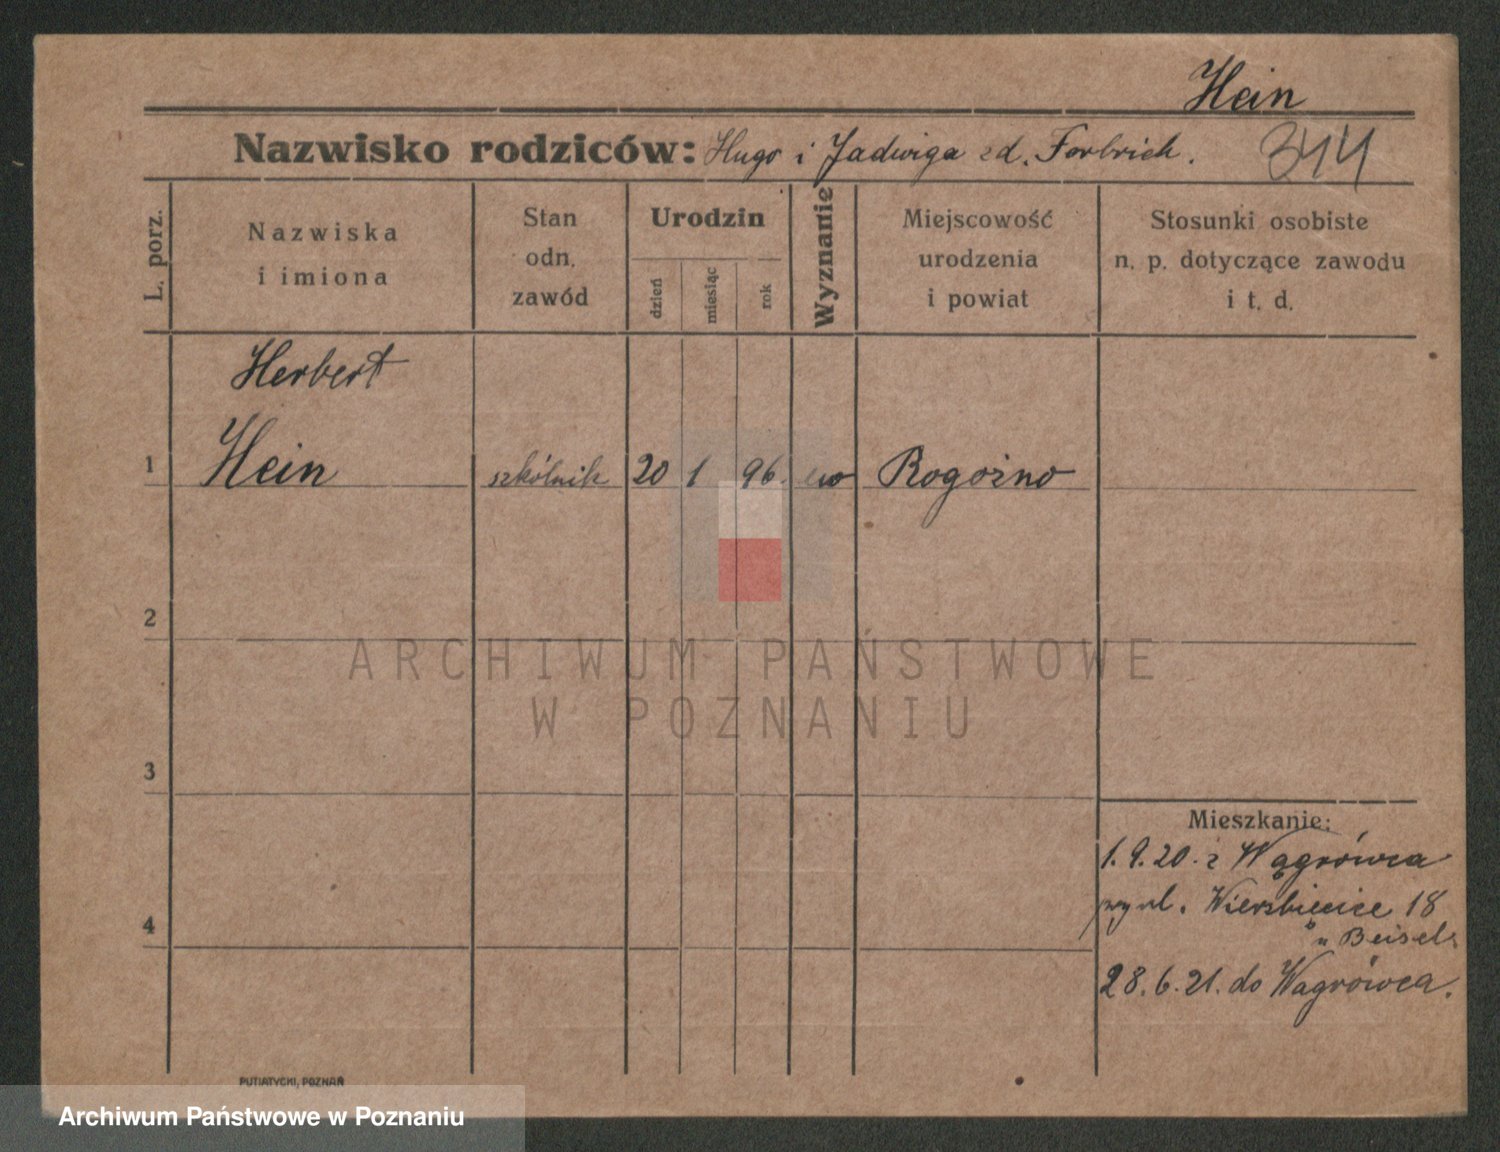 Hein
Nazwisko rodziców: Hugo i Jadwiga zd. Forbrich.
344
L. porz.
Nazwiska
i imiona
Stan
odn.
zawód
Urodzin
dzień
miesiąc
rok
Wyznanie
Miejscowość
urodzenia
i powiat
Stosunki osobiste
n. p. dotyczące zawodu
i t. d.
Herbert
1 Hein szkólnik 20 1 96. ew Rogoźno
2
ARCHIWUM PAŃSTWOWE
W POZNANIU
3
Mieszkanie:
1.9.20. z Wągrówca
przy ul. Wierzbięcice 18
4
u Beisel
28.6.21. do Wągrówca.
PUTIATYCKI, POZNAŃ
Archiwum Państwowe w Poznaniu